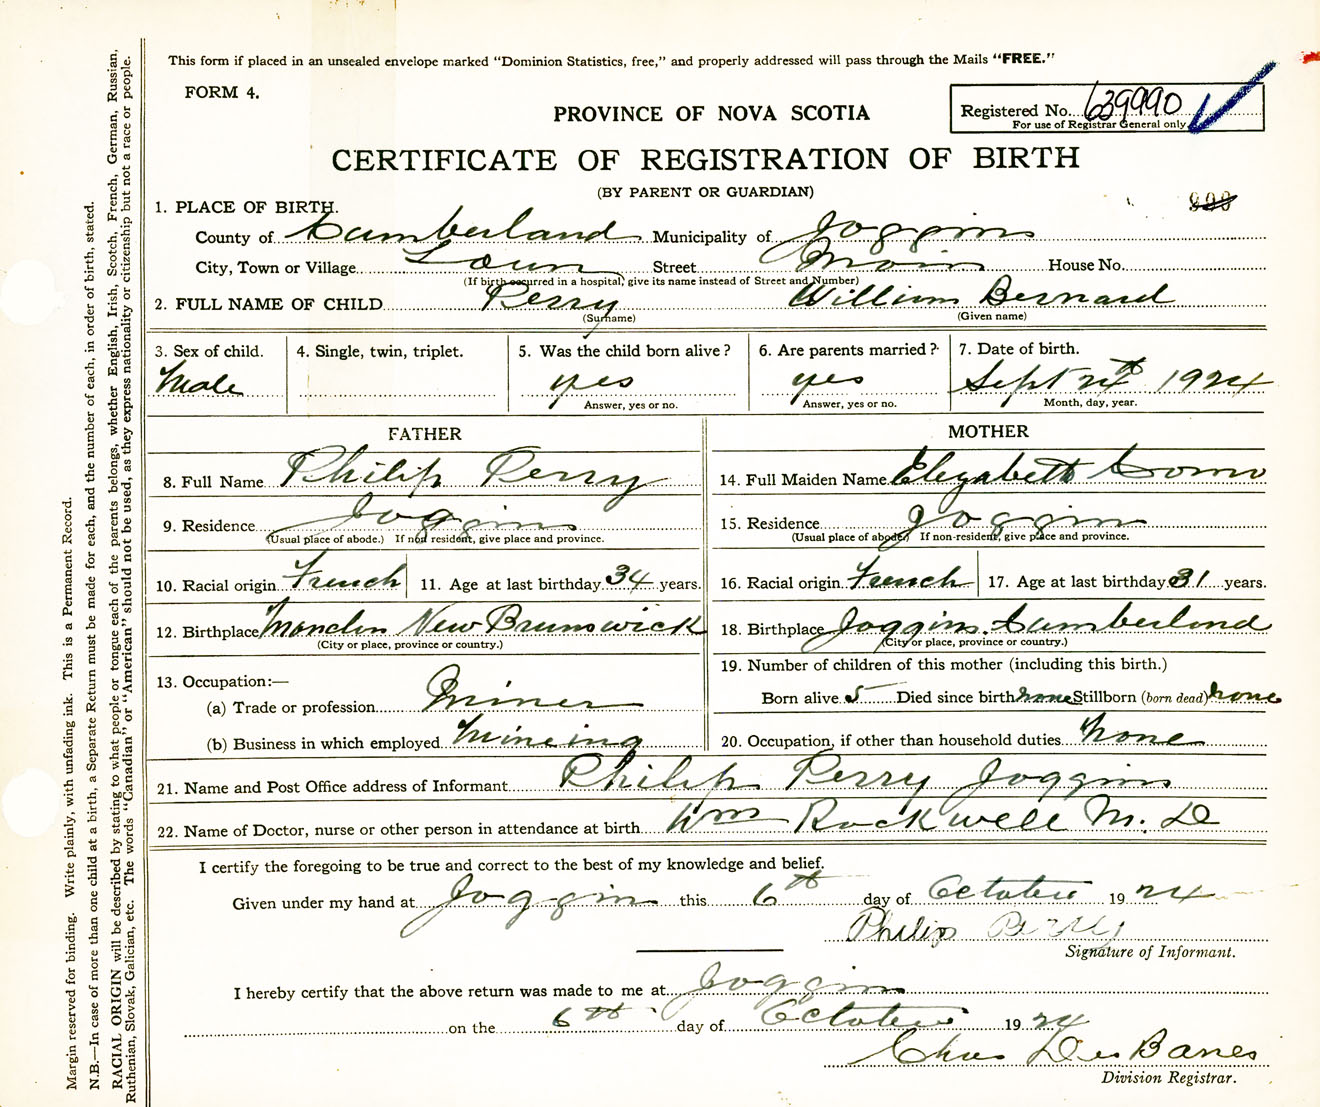 This form if placed in an unsealed envelope marked "Dominion Statistics, free," and properly addressed will pass through the Mails "FREE."
FORM 4.
PROVINCE OF NOVA SCOTIA
Registered No. 639990
For use of Registrar General only
CERTIFICATE OF REGISTRATION OF BIRTH
(BY PARENT OR GUARDIAN)
1. PLACE OF BIRTH.
County of Cumberland Municipality of Joggins
City, Town or Village Town Street Main House No.
(If birth occurred in a hospital, give its name instead of Street and Number)
2. FULL NAME OF CHILD Perry William Bernard
(Surname) (Given name)
3. Sex of child. 4. Single, twin, triplet. 5. Was the child born alive? 6. Are parents married? 7. Date of birth.
Male yes yes Sept 24th 1924
Answer, yes or no. Answer, yes or no. Month, day, year.
FATHER MOTHER
8. Full Name Philip Perry 14. Full Maiden Name Elizabeth
9. Residence Joggins 15. Residence Joggins
(Usual place of abode.) If non resident, give place and province. (Usual place of abode.) If non-resident, give place and province.
10. Racial origin French 11. Age at last birthday 34 years. 16. Racial origin French 17. Age at last birthday 31 years.
12. Birthplace New Brunswick 18. Birthplace Joggins. Cumberland
(City or place, province or country.) (City or place, province or country.)
13. Occupation:— 19. Number of children of this mother (including this birth.)
(a) Trade or profession Miner Born alive 5 Died since birth none Stillborn (born dead) none
(b) Business in which employed Mineing 20. Occupation, if other than household duties None
21. Name and Post Office address of Informant Philip Perry Joggins
22. Name of Doctor, nurse or other person in attendance at birth Wm Rockwell M. D
I certify the foregoing to be true and correct to the best of my knowledge and belief.
Given under my hand at Joggins this 6th day of October 1924
Philip Perry
Signature of Informant.
I hereby certify that the above return was made to me at Joggins
on the 6th day of October 1924
Chas Des Banes
Division Registrar.
Margin reserved for binding. Write plainly, with unfading ink. This is a Permanent Record.
N.B.—In case of more than one child at a birth, a Separate Return must be made for each, and the number of each, in order of birth, stated.
RACIAL ORIGIN will be described by stating to what people or tongue each of the parents belongs, whether English, Irish, Scotch, French, German, Russian,
Ruthenian, Slovak, Galician, etc. The words "Canadian" or "American" should not be used, as they express nationality or citizenship but not a race or people.